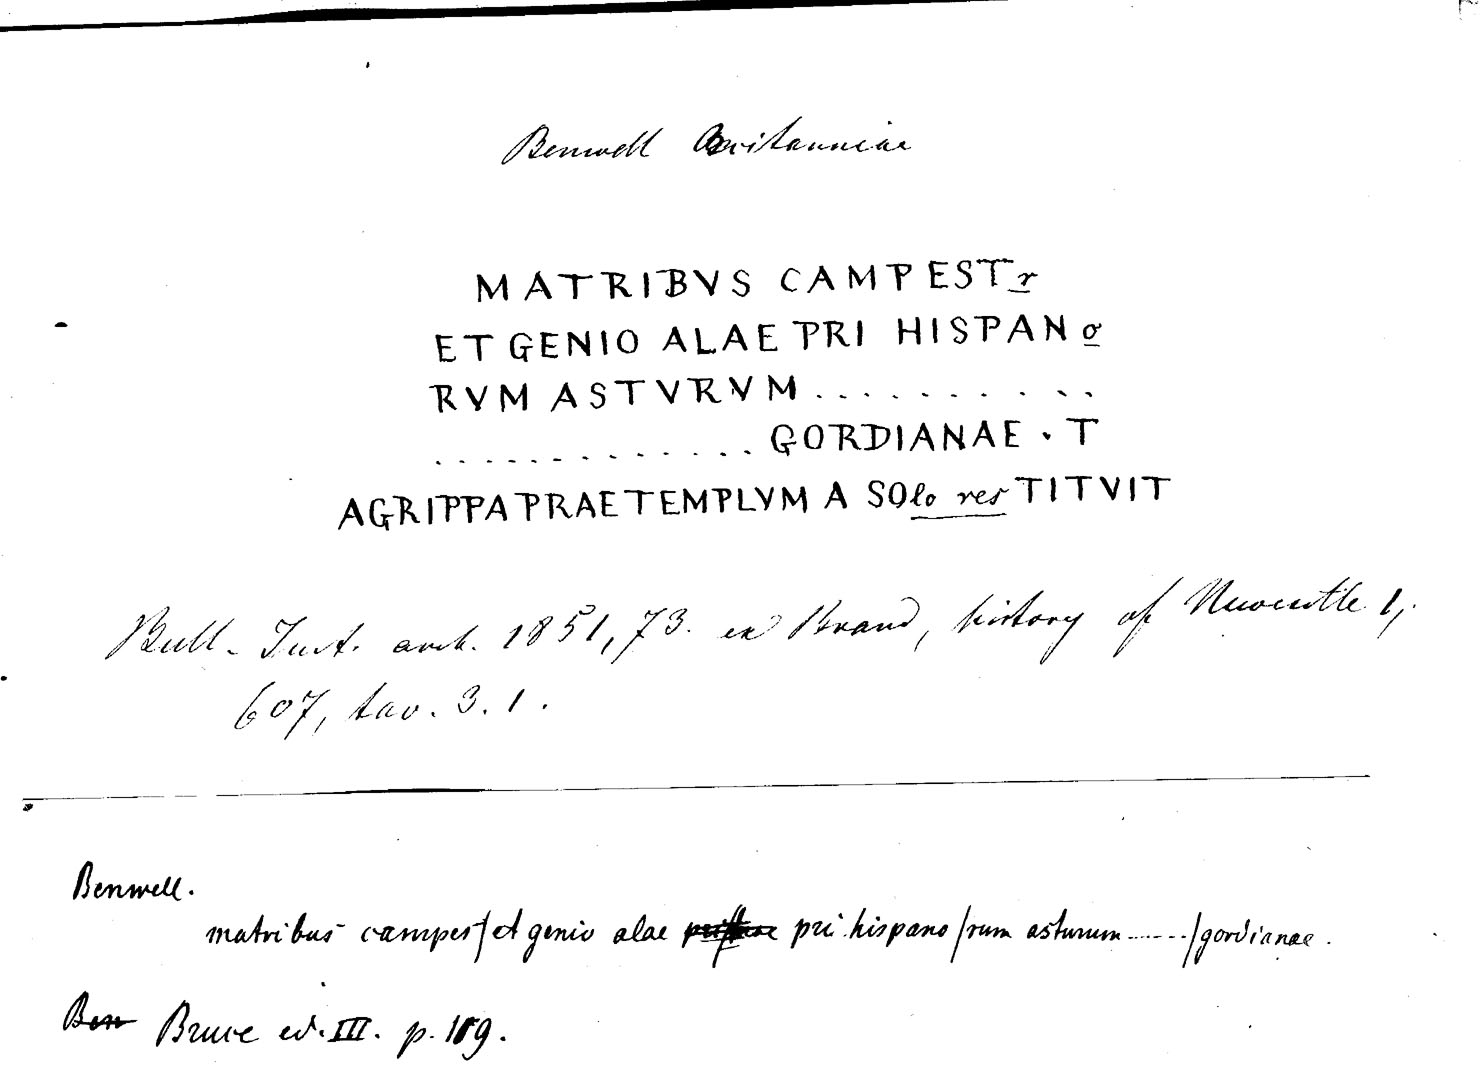 Benwell Britanniae
MATRIBVS CAMPESTr
ET GENIO ALAE PRI HISPANo
RVM ASTVRVM . . . . . . . . . .
. . . . . . . . . . . . . GORDIANAE · T
AGRIPPA PRAE TEMPLVM A SOlo resTITVIT
Bull. Inst. arch. 1851, 73. ex Brand, history of Newcastle 1,
607, tav. 3. 1.
Benwell.
matribus campes/et genio alae pri. hispano/rum asturum ......./gordianae.
Ben Bruce ed. III. p. 109.